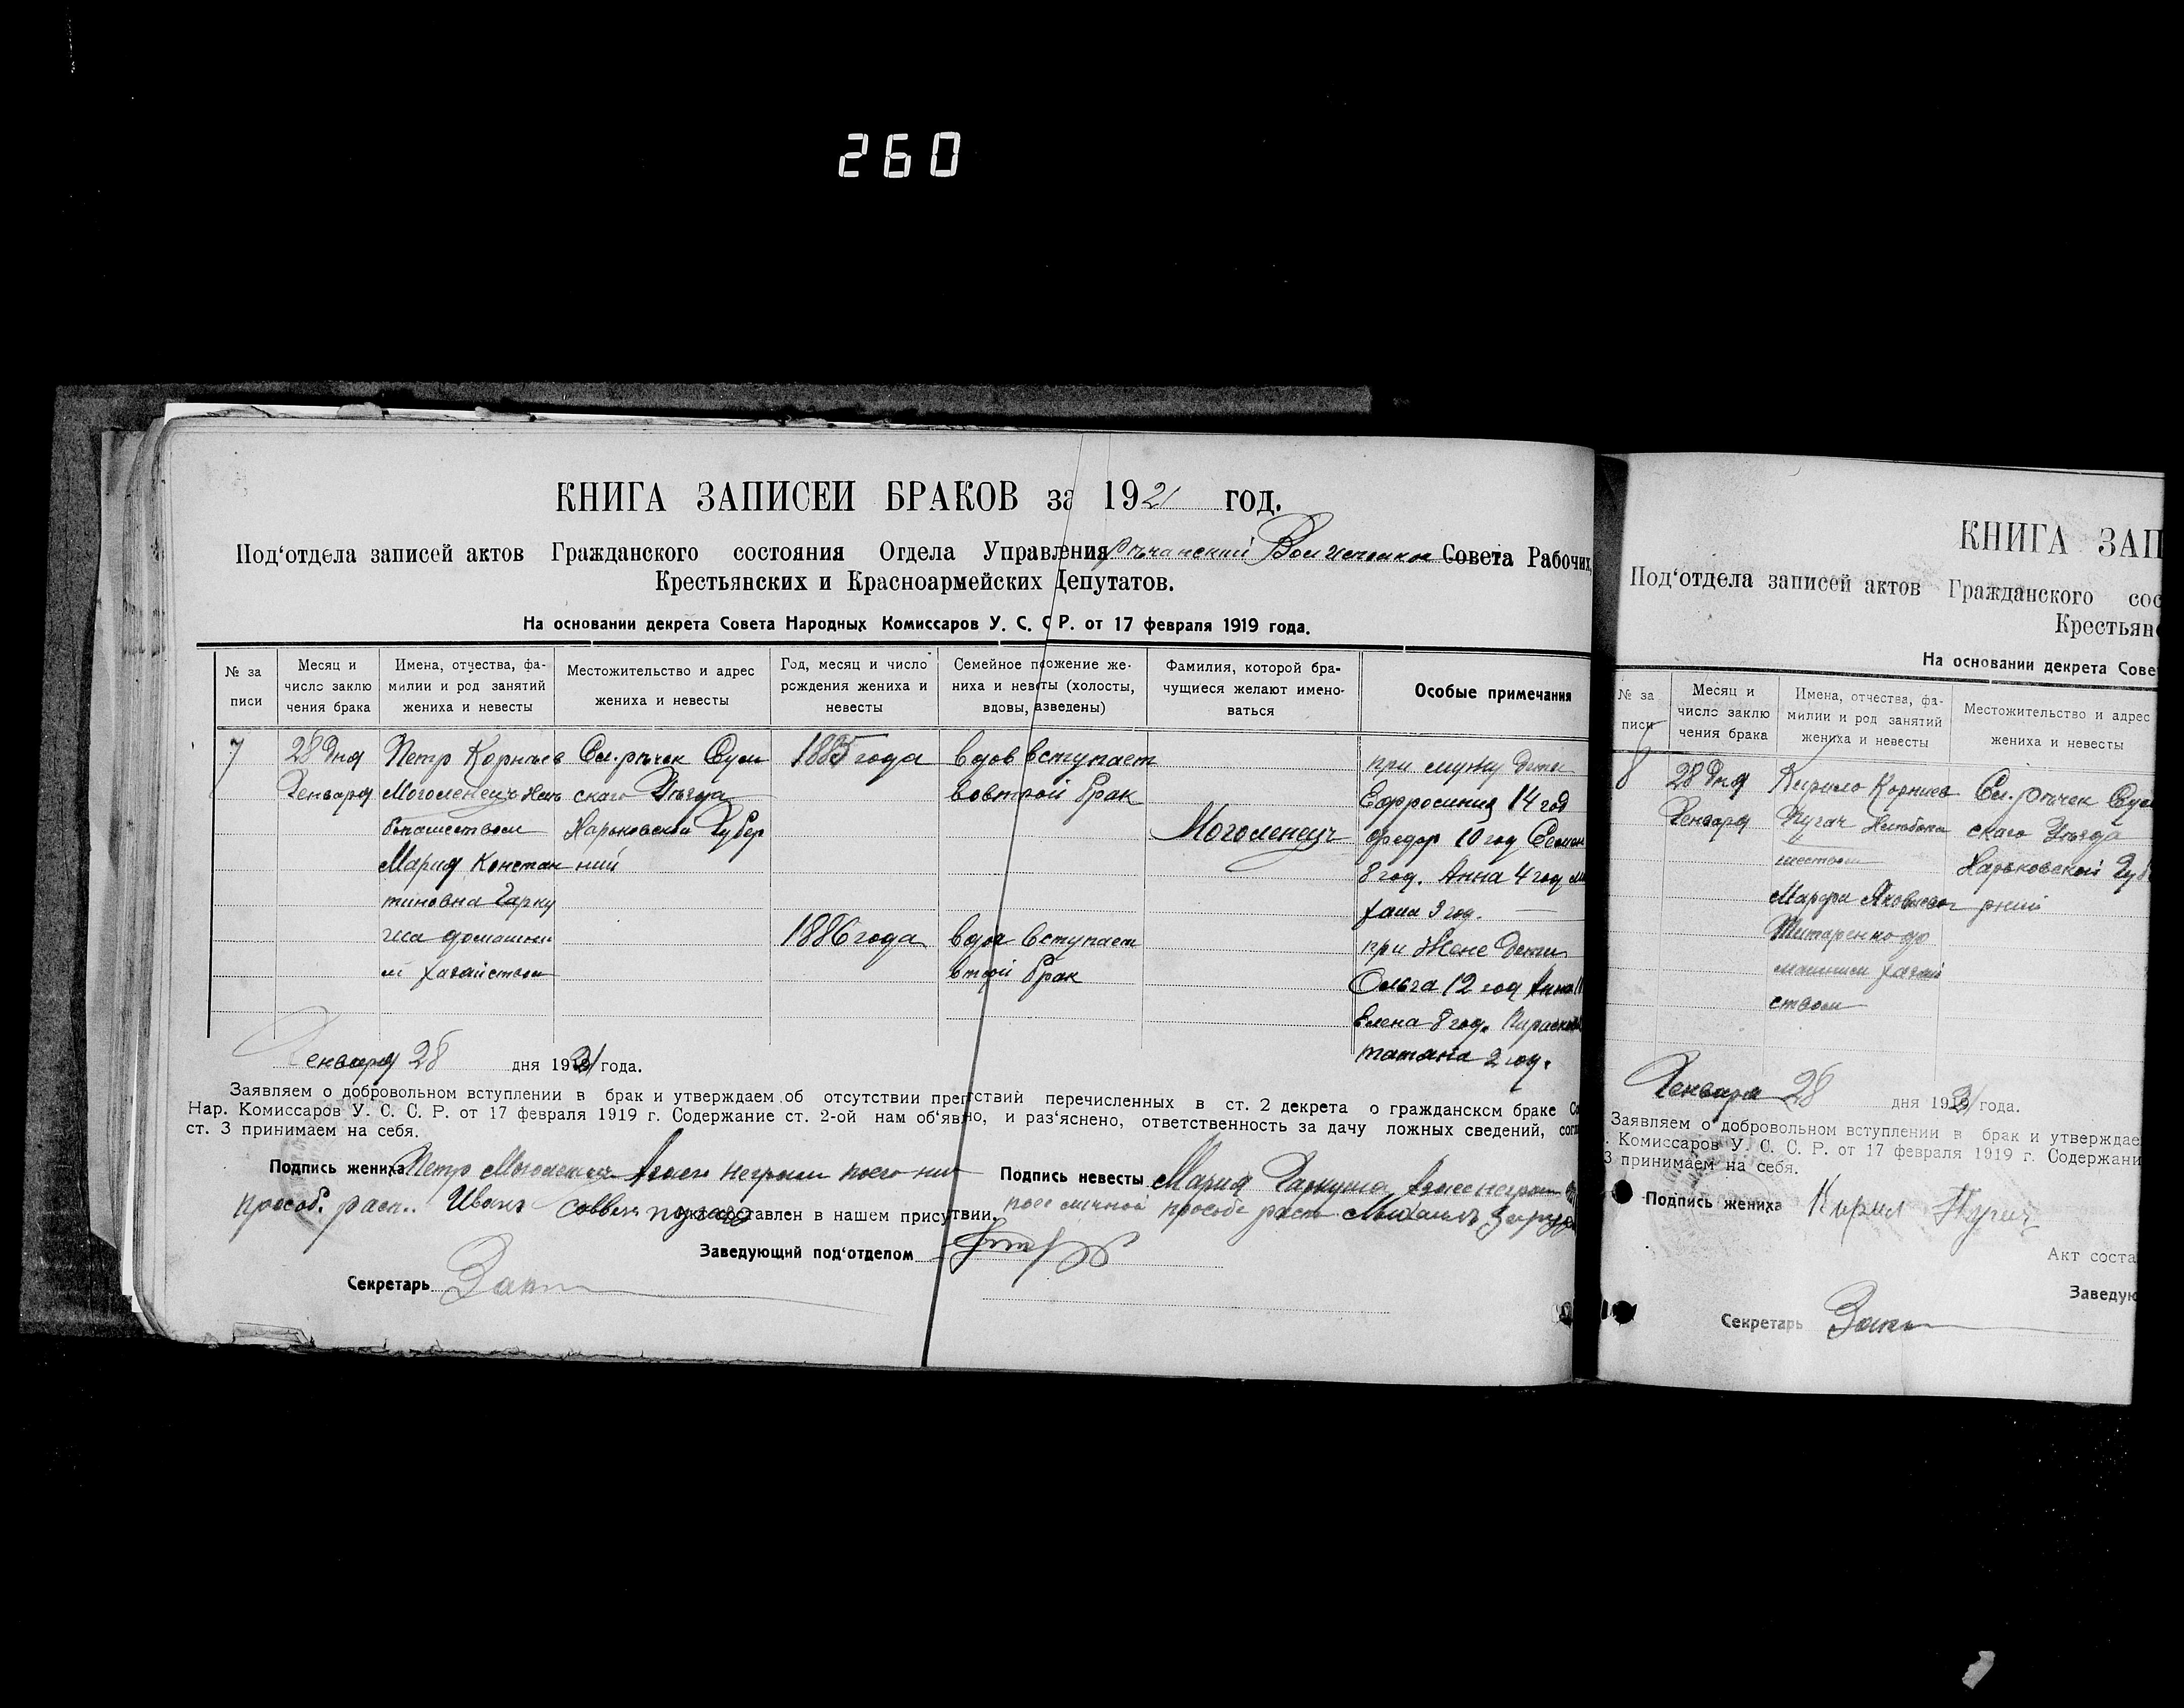 260
КНИГА ЗАПИСЕЙ БРАКОВ за 1921 год.
Под‘отдела записей актов Гражданского состояния Отдела Управления Совета Рабочих,
Крестьянских и Красноармейских Депутатов.
На основании декрета Совета Народных Комиссаров У. С. С Р. от 17 февраля 1919 года.
№ за
писи
Месяц и
число заклю
чения брака
Имена, отчества, фа-
милии и род занятий
жениха и невесты
Местожительство и адрес
жениха и невесты
Год, месяц и число
рождения жениха и
невесты
Семейное положение же-
ниха и невесты (холосты,
вдовы, разведены)
Фамилия, которой бра-
чущиеся желают имено-
ваться
Особые примечания
7
28 дня
Генваря
Петр Корниев
Моголенец Хле
бопашеством
Мария Констан
тиновна Гарку
ша домашни
м хазайством
Сл. речек Сум
скаго Уезда
Харьковской Губер
ний
1885 года
1886 года
вдов вступает
вовтрой брак
вдов вступает
втрой брак
Моголенец
при мужу дети
Ефросиния 14 год
Федор 10 год Семен
8 год. Анна 4 год
3 год.
при Жене дети
Ольга 12 год
Елена 8 год.
татана 2 год.
Генваря 28 дня 1921 года.
Заявляем о добровольном вступлении в брак и утверждаем об отсутствии препятствий перечисленных в ст. 2 декрета о гражданском браке
Нар. Комиссаров У. С. С. Р. от 17 февраля 1919 г. Содержание ст. 2-ой нам об‘явлено, и раз‘яснено, ответственность за дачу ложных сведений,
ст. 3 принимаем на себя.
Подпись жениха Петр Моголенец
прособ. расп. Иван
составлен в нашем присутвии.
Подпись невесты Мария Гаркуша
личной прозбе расп. Михаил
Заведующий под‘отделом
Секретарь
КНИГА ЗАП
Под‘отдела записей актов Гражданского сос
Крестьян
На основании декрета Сове
№ за
писи
Месяц и
число заклю
чения брака
Имена, отчества, фа-
милии и род занятий
жениха и невесты
Местожительство и адрес
жениха и невесты
8
28 дня
Генваря
Кирило Корниев
Пугач Хлебопа
шеством
Марфа Яковлевн
Титаренко до
машним хазай
ством
Сл. речек Сум
скаго Уезда
Харьковской Губ
рний
Генваря 28 дня 1921 года.
Заявляем о добровольном вступлении в брак и утверждае
. Комиссаров У. С. С. Р. от 17 февраля 1919 г. Содержани
3 принимаем на себя.
Подпись жениха Кирил Пугач
Акт соста
Заведую
Секретарь